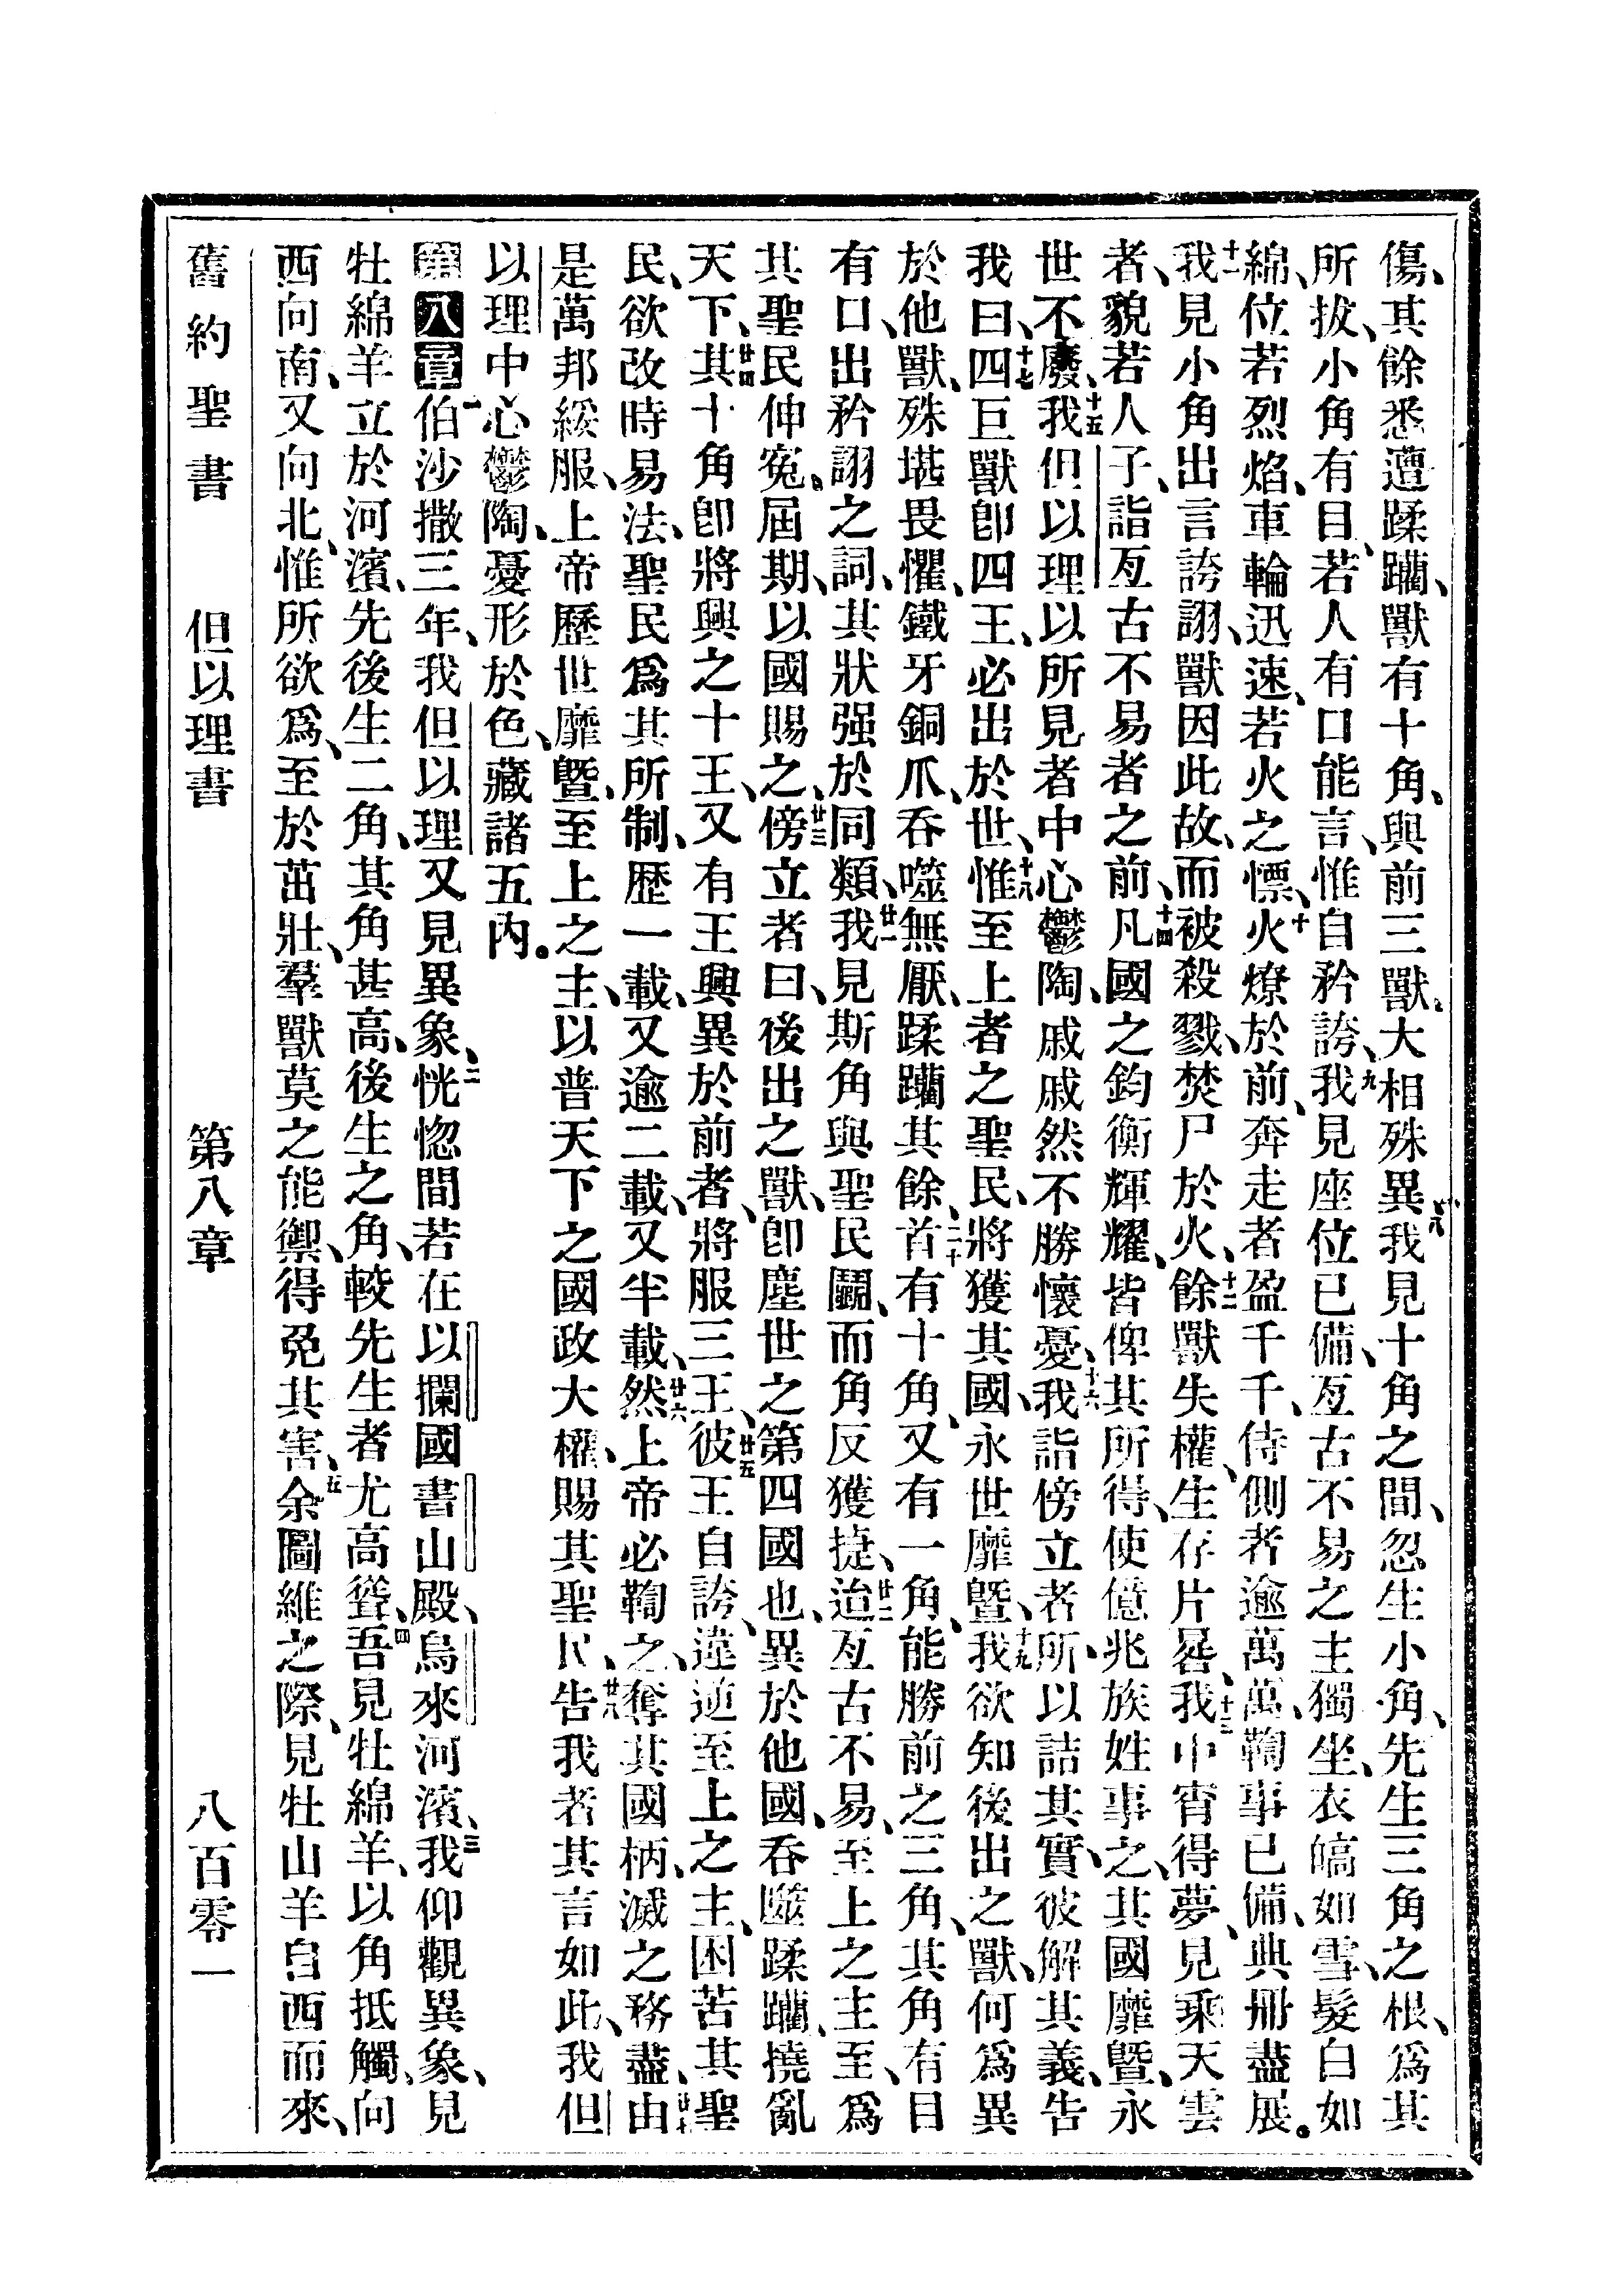 傷、其餘悉遭蹂躪、獸有十角、與前三獸、大相殊異、八我見十角之間、忽生小角、先生三角之根、爲其
所拔、小角有目、若人有口能言、惟自矜誇、九我見座位已備、亙古不易之主獨坐、衣皜如雪、髮白如
綿、位若烈焰、車輪迅速、若火之熛、十火燎於前、奔走者盈千千、侍側者逾萬萬、鞫事已備、典册盡展。
十一我見小角出言誇詡、獸因此故、而被殺戮、焚尸於火、十二餘獸失權、生存片晷、十三我中宵得夢、見乘天雲
者、貌若人子、詣亙古不易者之前、十四凡國之鈞衡輝耀、皆俾其所得、使億兆族姓事之、其國靡曁、永
世不廢、十五我但以理以所見者中心鬱陶、戚戚然不勝懷憂、十六我詣傍立者、所以詰其實、彼解其義、告
我曰、十七四巨獸卽四王、必出於世、十八惟至上者之聖民、將獲其國、永世靡曁、十九我欲知後出之獸、何爲異
於他獸、殊堪畏懼、鐵牙銅爪、吞噬無厭、蹂躪其餘、二十首有十角、又有一角、能勝前之三角、其角有目
有口、出矜詡之詞、其狀强於同類、廿一我見斯角與聖民鬭、而角反獲捷、廿二迨亙古不易、至上之主至、爲
其聖民伸寃、屆期、以國賜之、廿三傍立者曰、後出之獸、卽塵世之第四國也、異於他國、吞噬蹂躪、撓亂
天下、廿四其十角卽將興之十王、又有王興、異於前者、將服三王、廿五彼王自誇、違逆至上之主、困苦其聖
民、欲改時易法、聖民爲其所制、歷一載、又逾二載、又半載、廿六然上帝必鞫之、奪其國柄、滅之務盡、廿七由
是萬邦綏服、上帝歷世靡曁、至上之主、以普天下之國政大權、賜其聖民、廿八告我者其言如此、我但
以理中心鬱陶、憂形於色、藏諸五內。
第八章一伯沙撒三年、我但以理又見異象、二恍惚間若在以攔國書山殿、烏來河濱、三我仰觀異象、見
牡綿羊立於河濱、先後生二角、其角甚高、後生之角、較先生者尤高聳、四吾見牡綿羊、以角抵觸、向
西向南、又向北、惟所欲爲、至於茁壯、羣獸莫之能禦、得免其害、五余圖維之際、見牡山羊自西而來、
舊約聖書 但以理書 第八章 八百零一